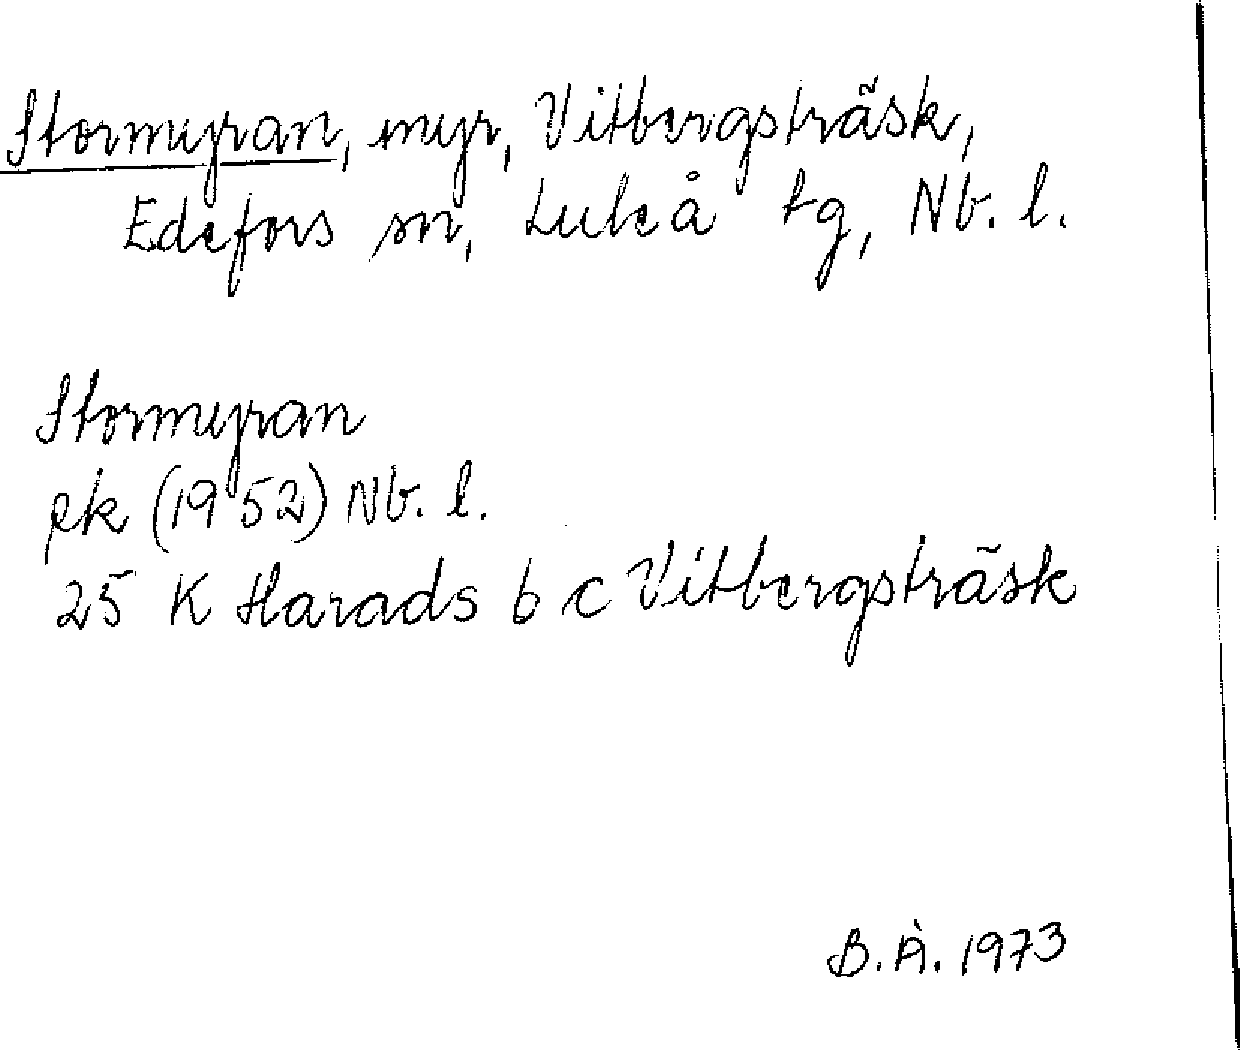 Stormyran, myr, Vitbergsträsk,
Edefors sn, Luleå tg, Nb. l.
Stormyran
ek (1952) Nb. l.
25 K Harads b c Vitbergsträsk
B. Å. 1973